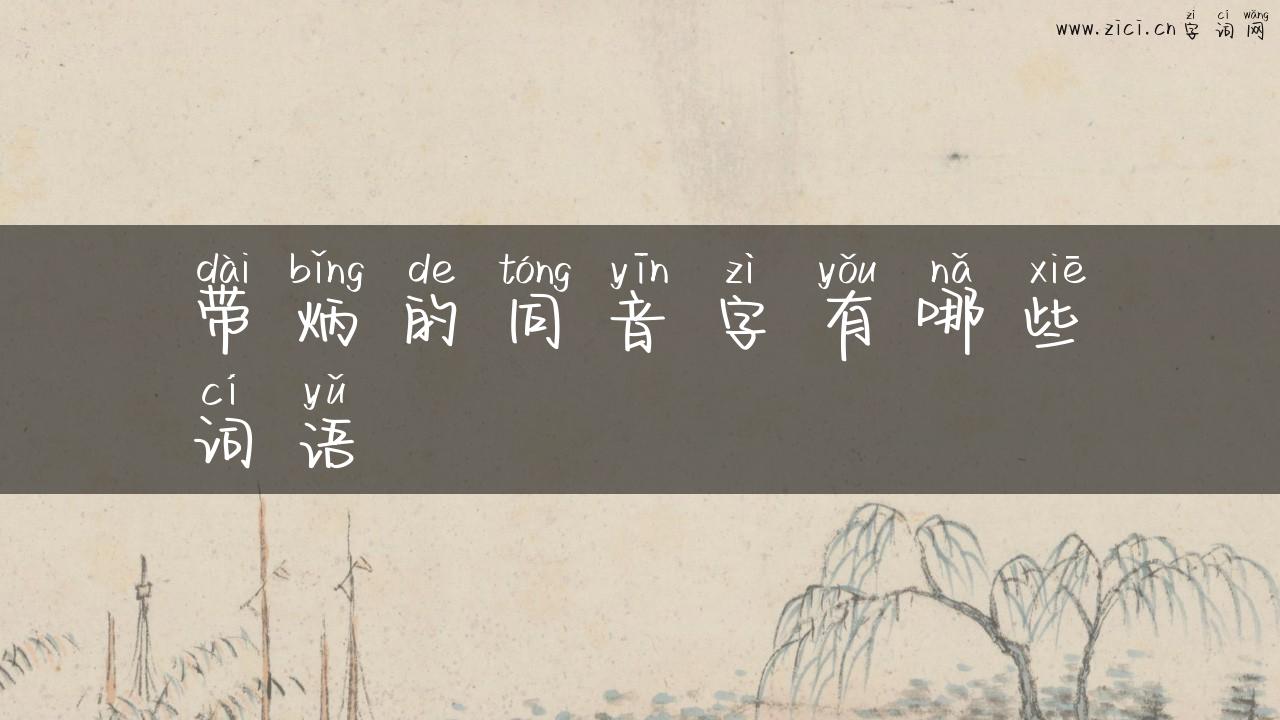 zì cí wǎng
www.zici.cn 字 词 网
dài bǐng de tóng yīn zì yǒu nǎ xiē
带 炳 的 同 音 字 有 哪 些
cí yǔ
词 语